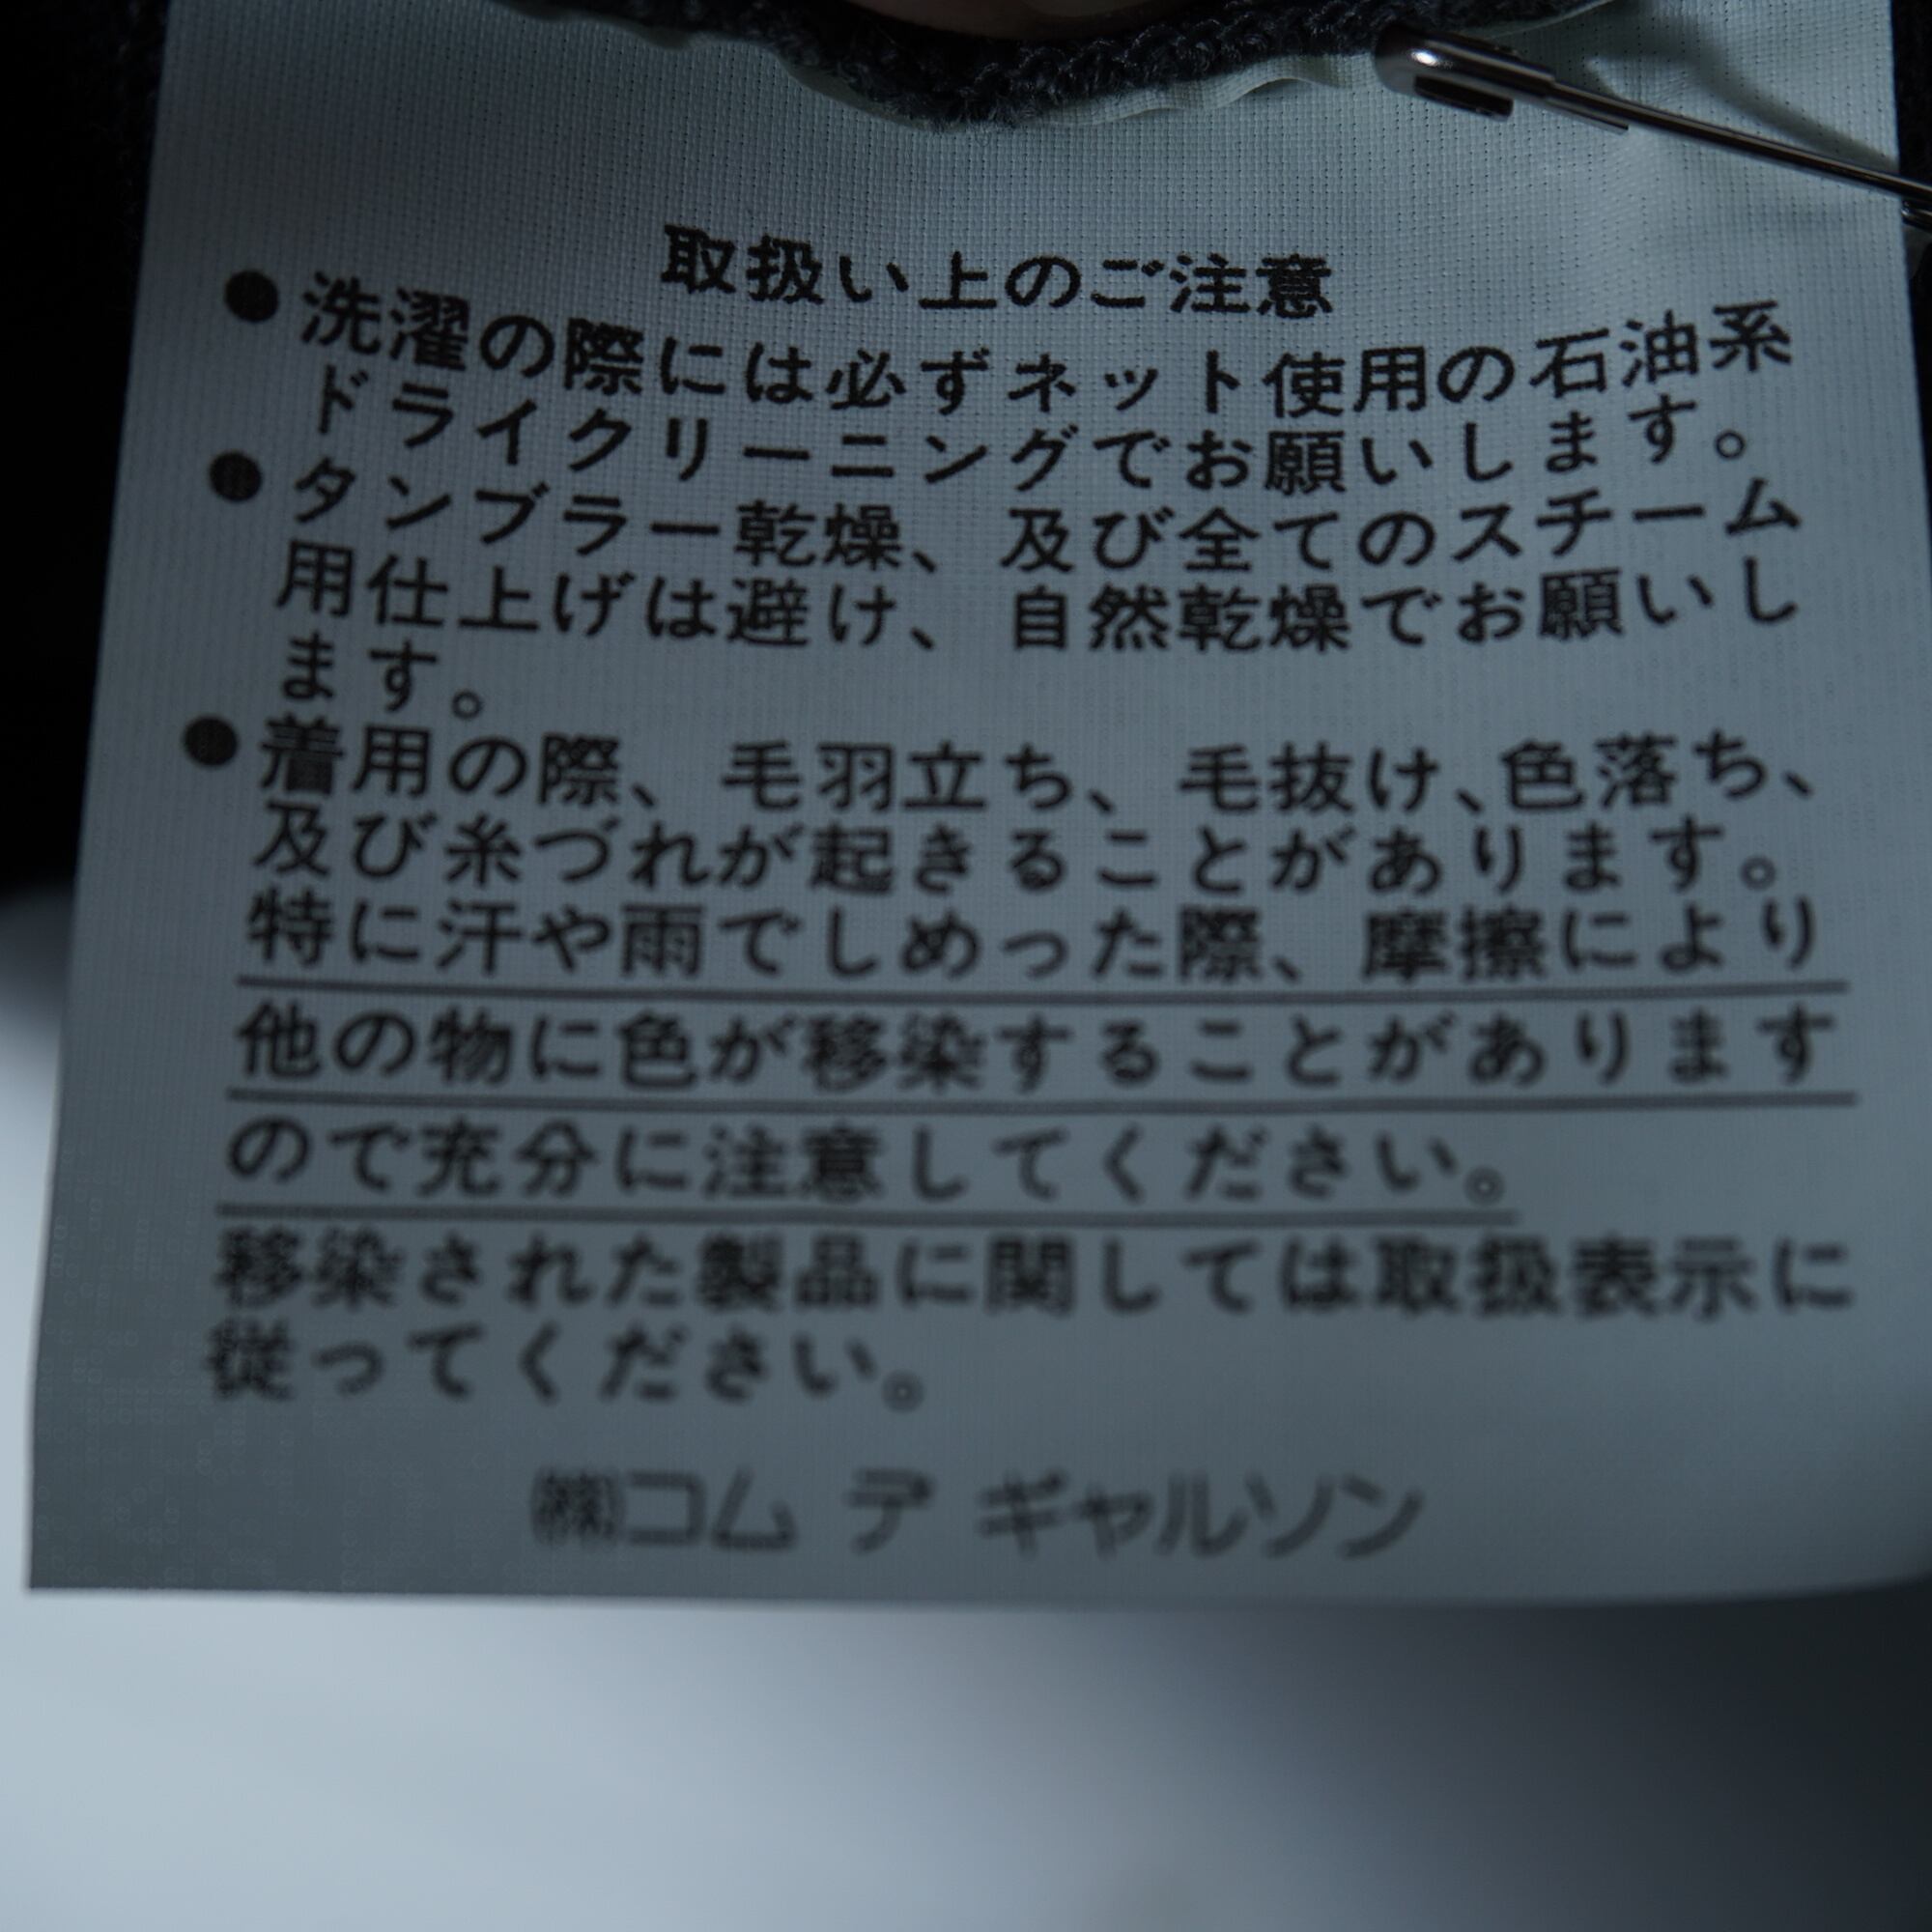 取扱い上のご注意
●洗濯の際には必ずネット使用の石油系
ドライクリーニングでお願いします。
●タンブラー乾燥、及び全てのスチーム
用仕上げは避け、自然乾燥でお願いし
ます。
●着用の際、毛羽立ち、毛抜け、色落ち、
及び糸づれが起きることがあります。
特に汗や雨でしめった際、摩擦により
他の物に色が移染することがあります
ので充分に注意してください。
移染された製品に関しては取扱表示に
従ってください。
㈱コム デ ギャルソン